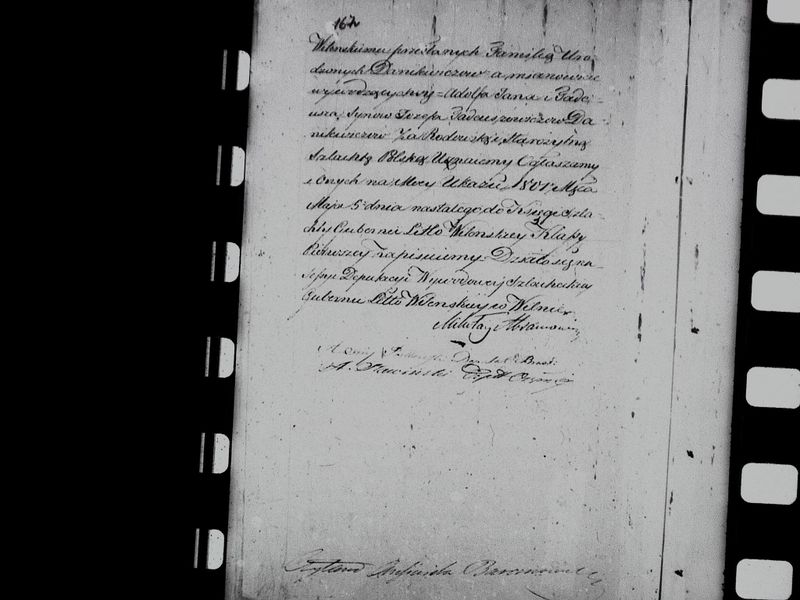 167
Wilenskiemu przesłanych Familię Uro
dzonych Danikiewiczow a mianowicie
wywodzących się = Adolfa Jana i Tade-
usza, Synow Jozefa Tadeuszowiczow Da-
nikiewiczow Za Rodowitą i Starożytną
Szlachtę Polską Uznaiemy Ogłaszamy
i Onych na Mocy Ukazu 1801 Mca
Maja 5 dnia nastałego do Księgi Szla-
chty Gubernii Litto Wilenskiey Klassy
Pierwszey zapisuiemy. Działo się na
Sessyi Deputacyi Wywodowey Szlacheckiey
Gubernii Litto Wilenskiey w Wilnie
Mikołay Abramowicz
A. Sawiński